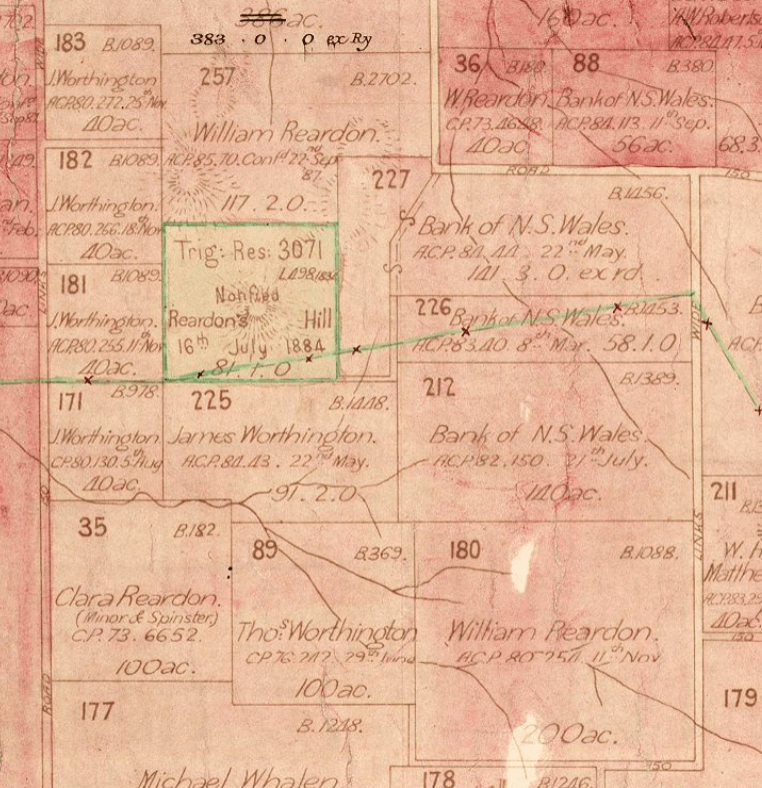 386 ac.
383 . 0 . 0 ex Ry
183 B.1089.
J.Worthington
A.C.P.80.272.25th Nov
40ac.
257
B.2702.
William Reardon.
A.C.P.85.70.Confd 22nd Sep
87.
117. 2. 0.
160ac.
36
W.Reardon.
C.P.73.4648
40ac.
88 B.380.
Bank of N.S.Wales.
A.C.P.84.113. 11th Sep.
56ac.
68.3.
ROAD
150
182 B.1089.
J.Worthington.
A.C.P.80.266.18th Nov
40ac.
227
B.1456.
Bank of N.S.Wales.
A.C.P. 84. 44. 22nd May.
141. 3. 0. ex rd.
Trig: Res: 3071
Notified
Reardon's Hill
16th July 1884
81. 1. 0
181 B.1089
J.Worthington.
A.C.P.80.255.11th Nov
40ac.
226 B.1453.
Bank of N.S.Wales.
A.C.P. 83.40. 8th Mar. 58.1.0
WIDE
171 B.978.
J.Worthington
C.P.80.130.5th Aug
40ac.
225 B.1448.
James Worthington.
A.C.P. 84.43. 22nd May.
91. 2. 0
212 B.1389.
Bank of N.S.Wales.
A.C.P. 82. 150. 21th July.
140ac.
LINKS
35 B.182.
Clara Reardon.
(Minor & Spinster)
C.P. 73. 6652.
100ac.
89 B.369.
Thos Worthington
C.P. 76. 247. 29th June
100ac.
180 B.1088.
William Reardon.
A.C.P. 80 254. 11th Nov
200ac.
211
W. H
Matthe
40ac.
150
ROAD
177
B.1248.
Michael Whalen
179
150
178 B.1246.